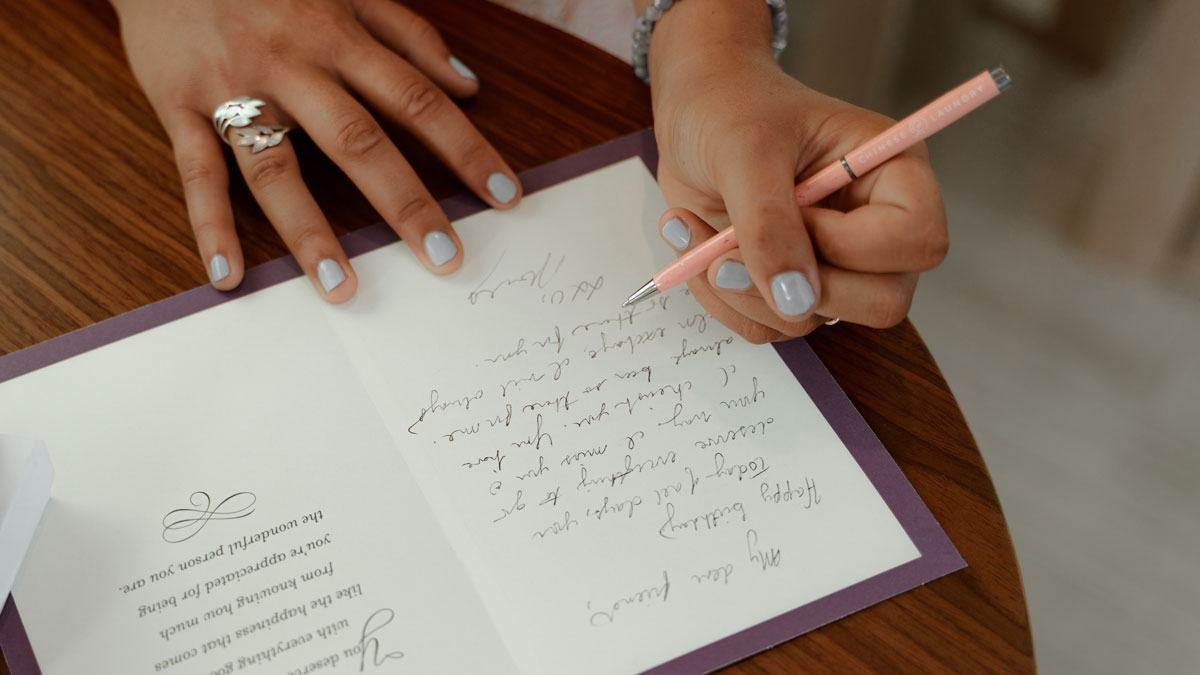 My dear friend,
Happy birthday
Today - of all days, you
deserve everything to go
your way. I miss you
I cherish you. You have
always been so there for me.
In exchange, I will always
be so there for you.
You
with everything
like the happiness that comes
from knowing how much
you're appreciated for being
the wonderful person you are.
CHINESE LAUNDRY